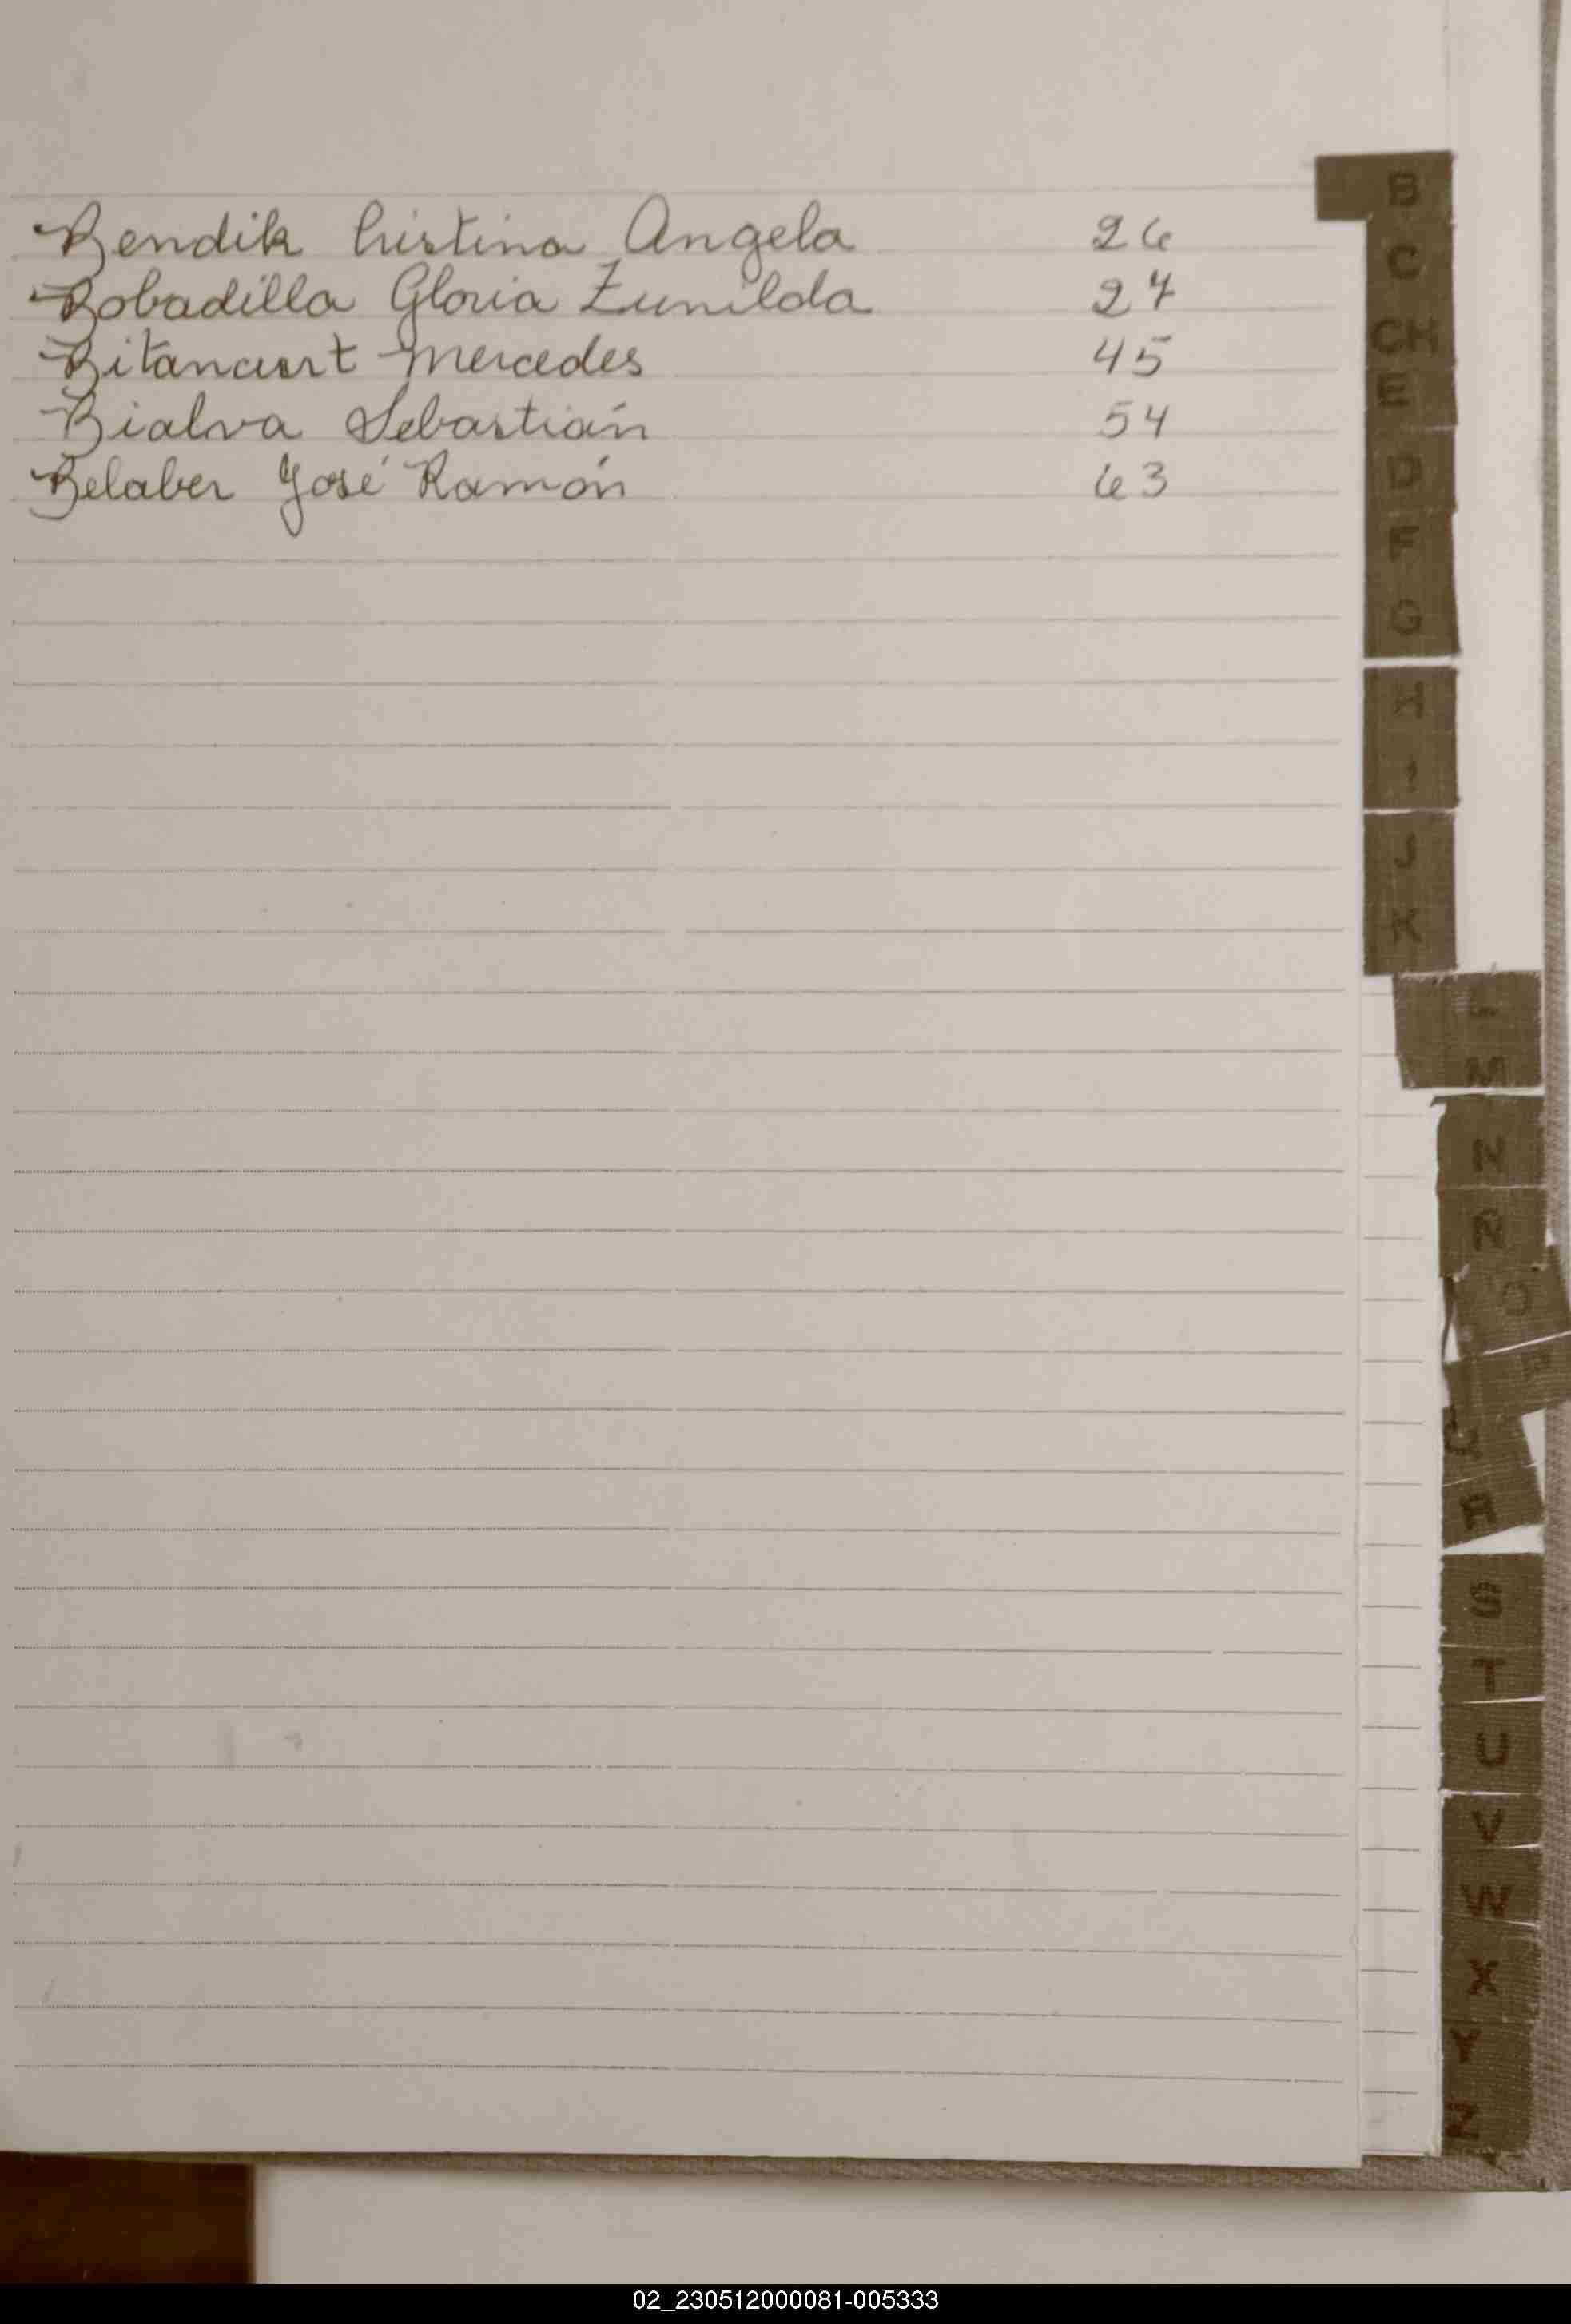 Bendik Cristina Angela 26
Bobadilla Gloria Zunilda 27
Bitancurt Mercedes 45
Bialva Sebastián 54
Belaber José Ramón 63
B
C
CH
E
D
F
G
H
I
J
K
L
M
N
O
P
Q
R
S
T
U
V
W
X
Y
Z
02_230512000081-005333